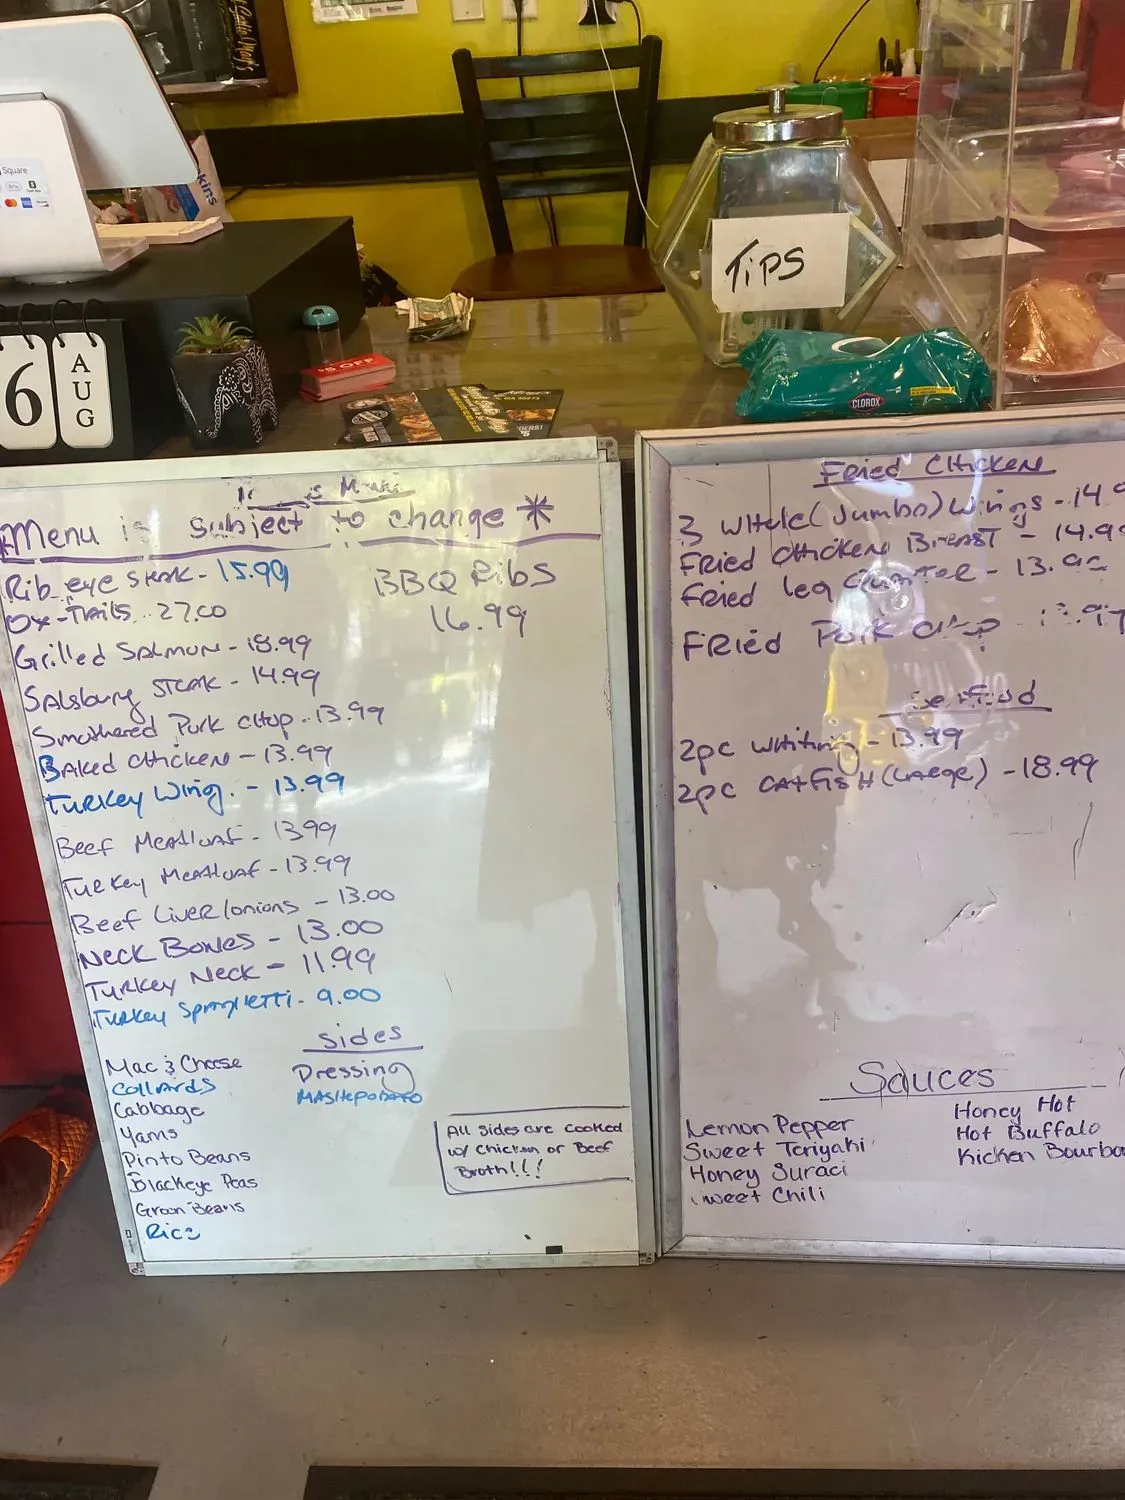 Square
kins
TiPS
6
AUG
$5 OFF
CLOROX
GA 30273
Menu is subject to change *
Rib eye STEAK - 15.99
Ox-TAils .. 27.00
Grilled SAlmon - 18.99
SAlsbury STEAK - 14.99
Smothered Pork chop - 13.99
BAked chicken - 13.99
Turkey Wing. - 13.99
Beef MeAtloAf - 13.99
Turkey MeAtloAf - 13.99
Beef Liver/onions - 13.00
Neck Bones - 13.00
Turkey Neck - 11.99
Turkey SpAghetti - 9.00
BBQ Ribs
16.99
Sides
Mac & Cheese
CollArds
Cabbage
Yams
Pinto Beans
Blackeye Peas
Green Beans
Rice
Dressing
MAShepotato
All sides are cooked
w/ Chicken or Beef
Broth!!!
Fried Chicken
3 Whole (Jumbo) Wings - 14.9
Fried Chicken Breast - 14.99
Fried leg Quarter - 13.99
Fried Pork chop
Seafood
2pc Whiting - 13.99
2pc CAtfish (LArge) - 18.99
Sauces
Lemon Pepper
Sweet Teriyaki
Honey Suraci
Sweet Chili
Honey Hot
Hot Buffalo
Kicken Bourbo